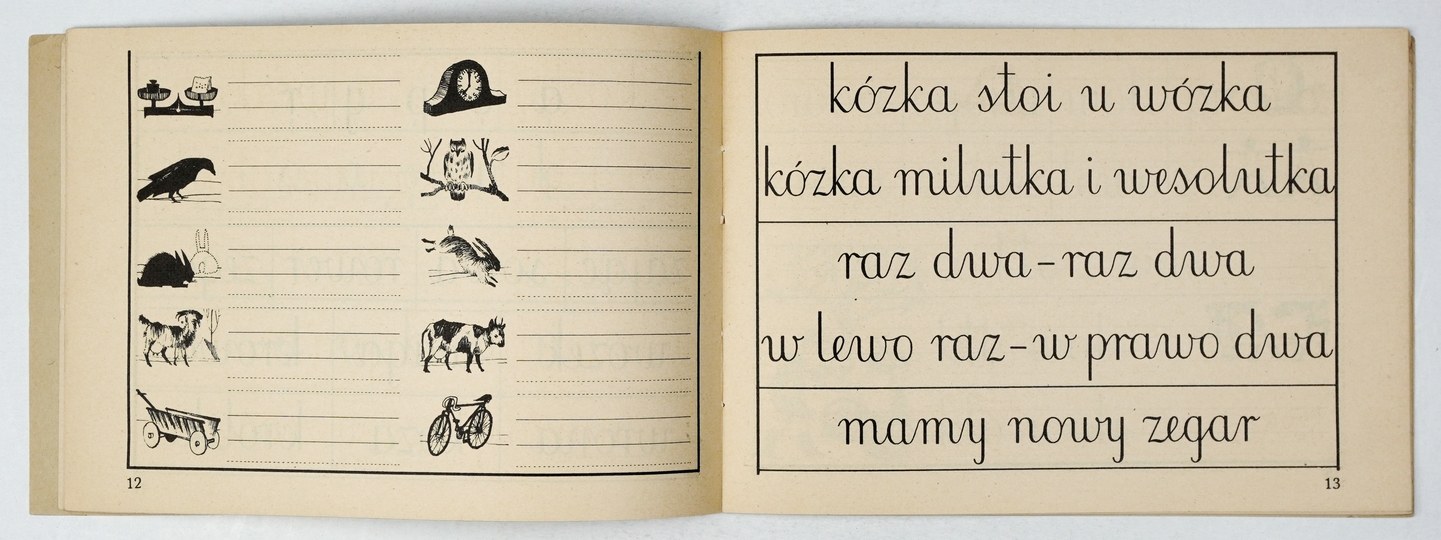 12
kózka stoi u wózka
kózka milutka i wesolutka
raz dwa-raz dwa
w lewo raz-w prawo dwa
mamy nowy zegar
13